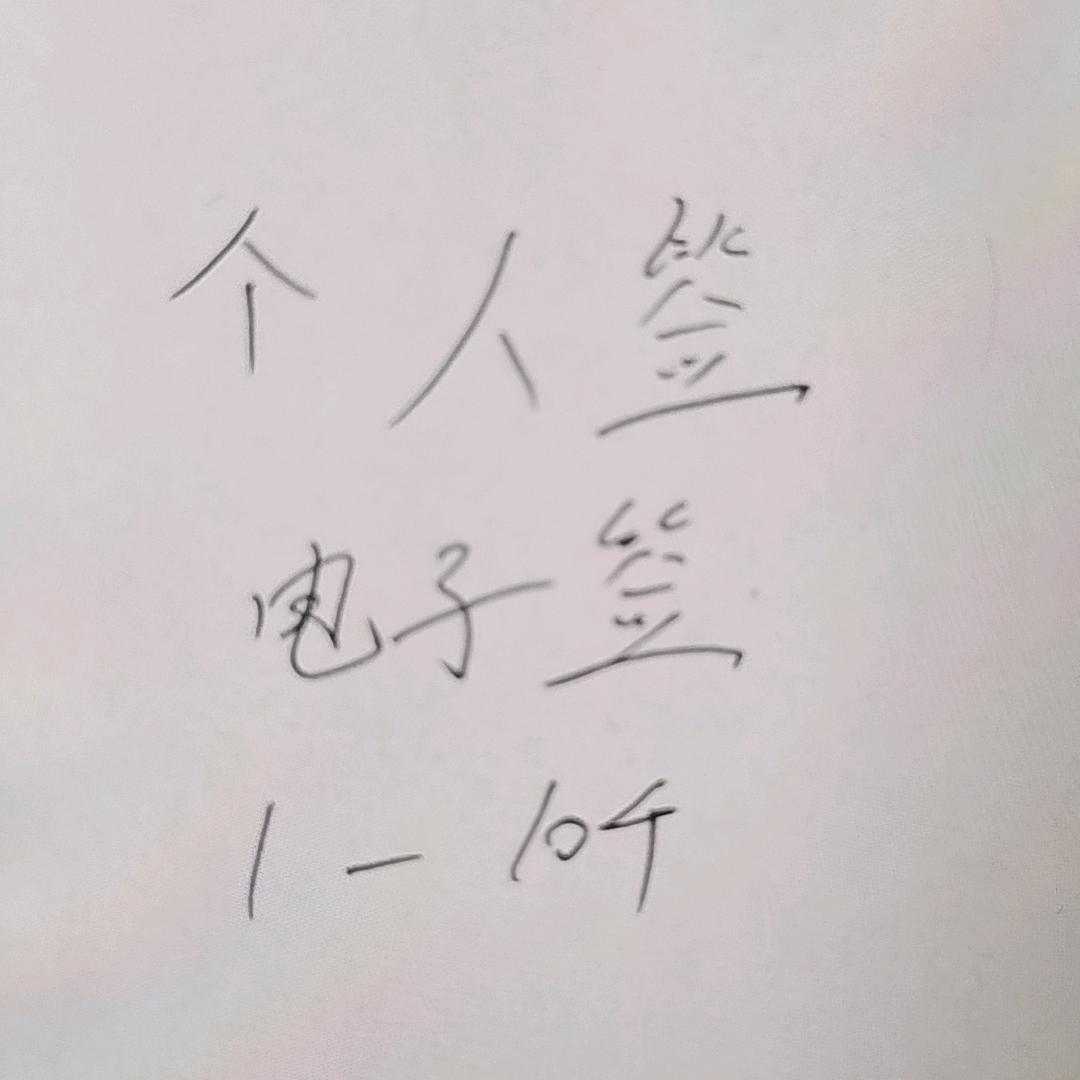 个人签
电子签
1-10个